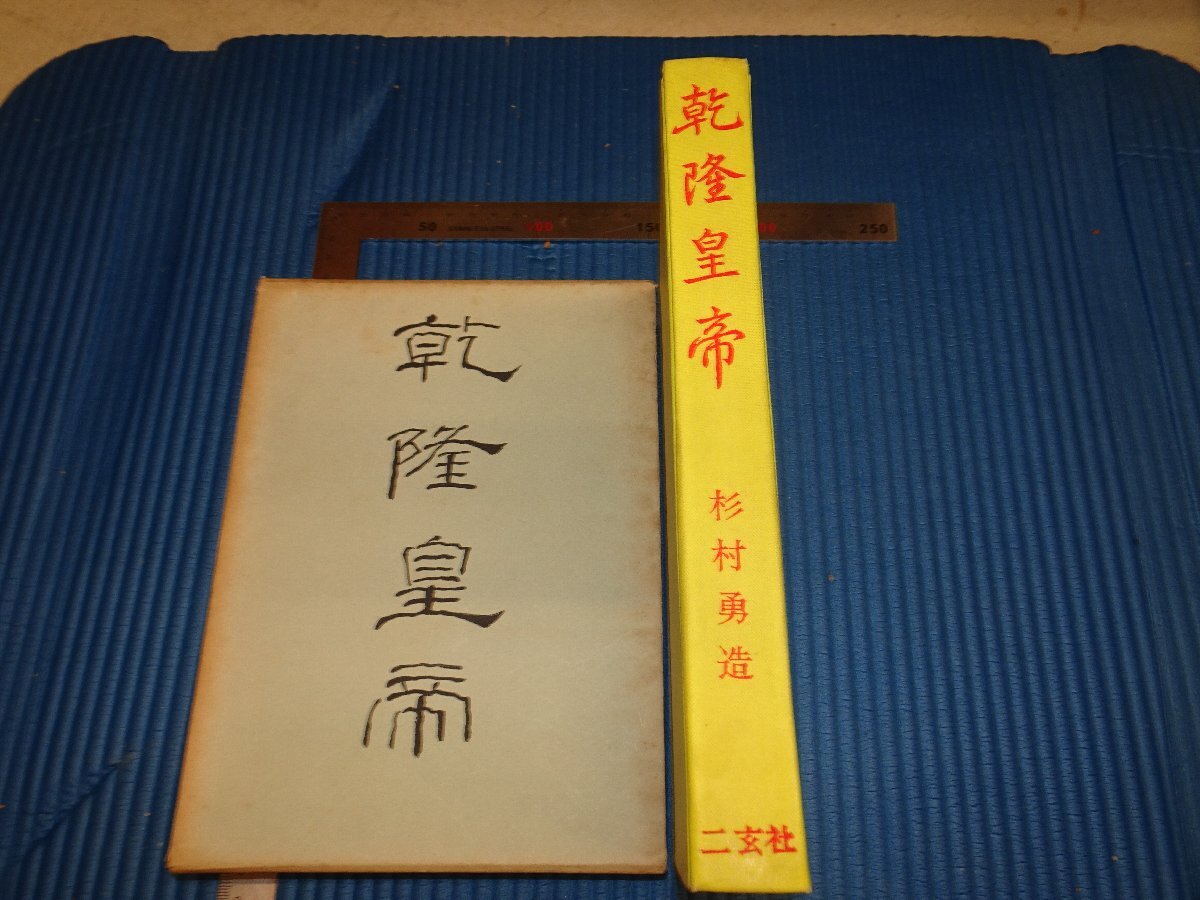 乾隆皇帝
乾隆皇帝
杉村勇造
二玄社
50 STAINLESS STEEL 100 150
250